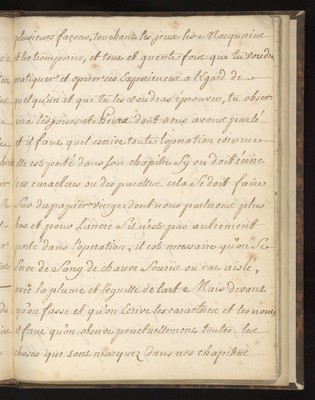 plusieurs façons, touchant les jeux les Macqueries
et les tromperies, et tous et quante fois que tu voudra
pratiquer et operer ces Experiences a l'egard de
quelqu'un et que tu les voudras eprouver, tu obser
vera les jours et heures dont nous avons parlé
et il faut quel escrive toute l'operation comme
elle est porté dans son chapitre Sy on doit écrire
ces caracteres ou des paroles cela se doit faire
Sur du papier vierge dont nous parlerons plus
bas et pour L'ancre S'il n'est pas autrement
porté dans l'operation, il est necessaire qu'on Se
Serve de Sang de chauve Souris ou rat aisle,
avec la plume et l'eguille de l'art Mais devant
qu'on fasse et qu'on Ecrive les caracteres et les noms
il faut qu'on observe ponctuellement toutes les
choses qui sont marquez dans nos chapitre